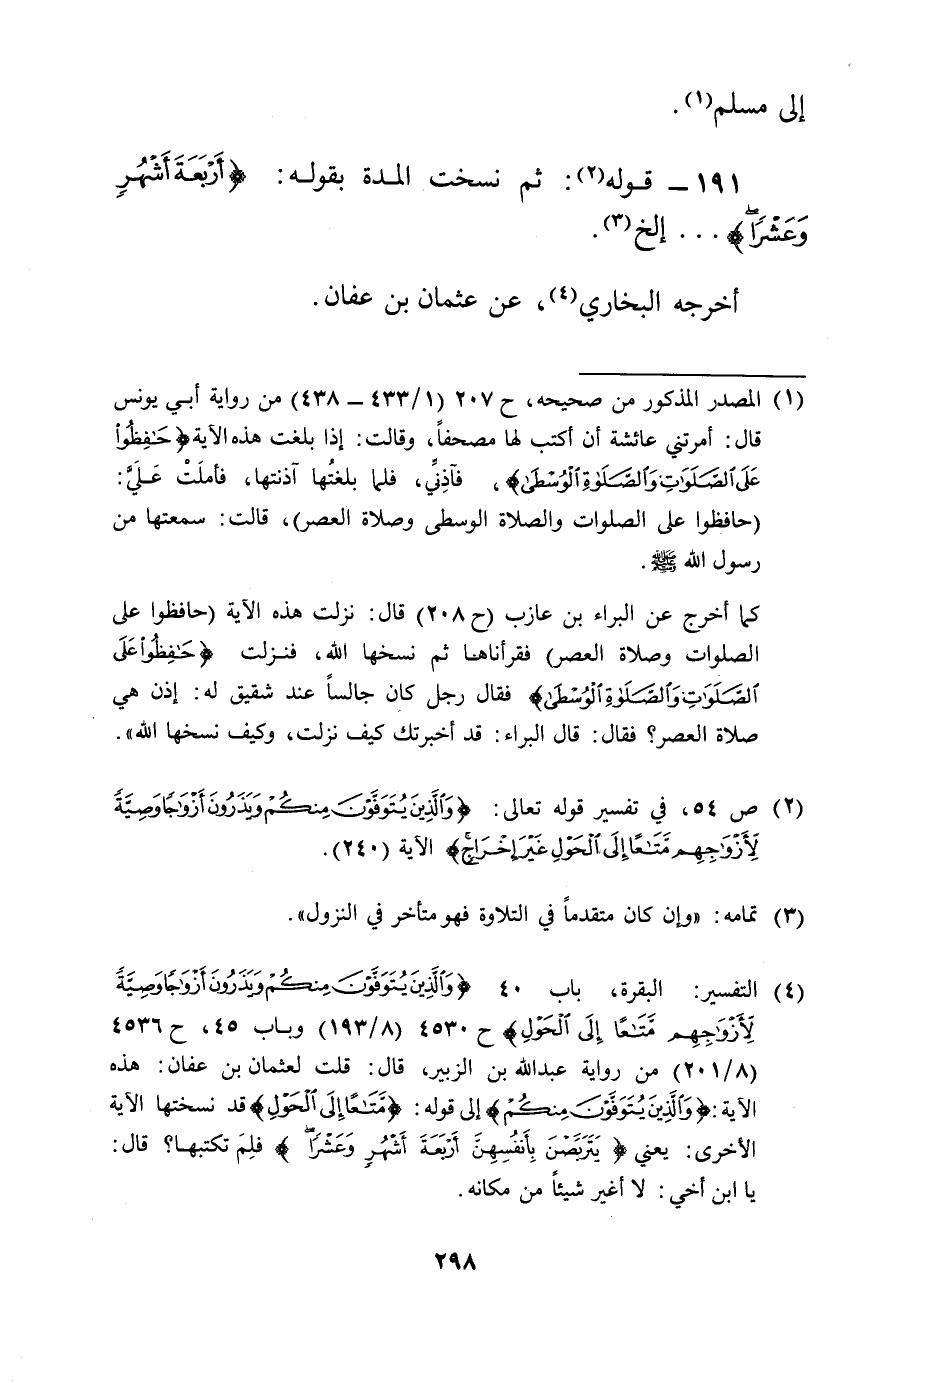 إلى مسلم(١).
١٩١ ــ قوله(٢): ثم نسخت المدة بقوله: ﴿أَرْبَعَةَ أَشْهُرٍ
وَعَشْرًا ۖ﴾ . . . إلخ(٣).
أخرجه البخاري(٤)، عن عثمان بن عفان.
(١) المصدر المذكور من صحيحه، ح ٢٠٧ (١/٤٣٣ ــ ٤٣٨) من رواية أبي يونس
قال: أمرتني عائشة أن أكتب لها مصحفاً، وقالت: إذا بلغت هذه الآية ﴿حَـٰفِظُوا۟
عَلَى ٱلصَّلَوَٰتِ وَٱلصَّلَوٰةِ ٱلْوُسْطَىٰ﴾، فآذِنِّي، فلما بلغتُها آذنتها، فأملَتْ عَليَّ:
(حافظوا على الصلوات والصلاة الوسطى وصلاة العصر)، قالت: سمعتها من
رسول الله ﷺ.
كما أخرج عن البراء بن عازب (ح ٢٠٨) قال: نزلت هذه الآية (حافظوا على
الصلوات وصلاة العصر) فقرأناها ثم نسخها الله، فنزلت ﴿حَـٰفِظُوا۟ عَلَى
ٱلصَّلَوَٰتِ وَٱلصَّلَوٰةِ ٱلْوُسْطَىٰ﴾ فقال رجل كان جالساً عند شقيق له: إذن هي
صلاة العصر؟ فقال: قال البراء: قد أخبرتك كيف نزلت، وكيف نسخها الله».
(٢) ص ٥٤، في تفسير قوله تعالى: ﴿وَٱلَّذِينَ يُتَوَفَّوْنَ مِنكُمْ وَيَذَرُونَ أَزْوَٰجًا وَصِيَّةً
لِّأَزْوَٰجِهِم مَّتَـٰعًا إِلَى ٱلْحَوْلِ غَيْرَ إِخْرَاجٍ ۚ﴾ الآية (٢٤٠).
(٣) تمامه: «وإن كان متقدماً في التلاوة فهو متأخر في النزول».
(٤) التفسير: البقرة، باب ٤٠ ﴿وَٱلَّذِينَ يُتَوَفَّوْنَ مِنكُمْ وَيَذَرُونَ أَزْوَٰجًا وَصِيَّةً
لِّأَزْوَٰجِهِم مَّتَـٰعًا إِلَى ٱلْحَوْلِ﴾ ح ٤٥٣٠ (٨/١٩٣) وباب ٤٥، ح ٤٥٣٦
(٨/٢٠١) من رواية عبدالله بن الزبير، قال: قلت لعثمان بن عفان: هذه
الآية: ﴿وَٱلَّذِينَ يُتَوَفَّوْنَ مِنكُمْ﴾ إلى قوله: ﴿مَّتَـٰعًا إِلَى ٱلْحَوْلِ﴾ قد نسختها الآية
الأخرى: يعني ﴿يَتَرَبَّصْنَ بِأَنفُسِهِنَّ أَرْبَعَةَ أَشْهُرٍ وَعَشْرًا ۖ﴾ فلِمَ تكتبها؟ قال:
يا ابن أخي: لا أغير شيئاً من مكانه.
٢٩٨